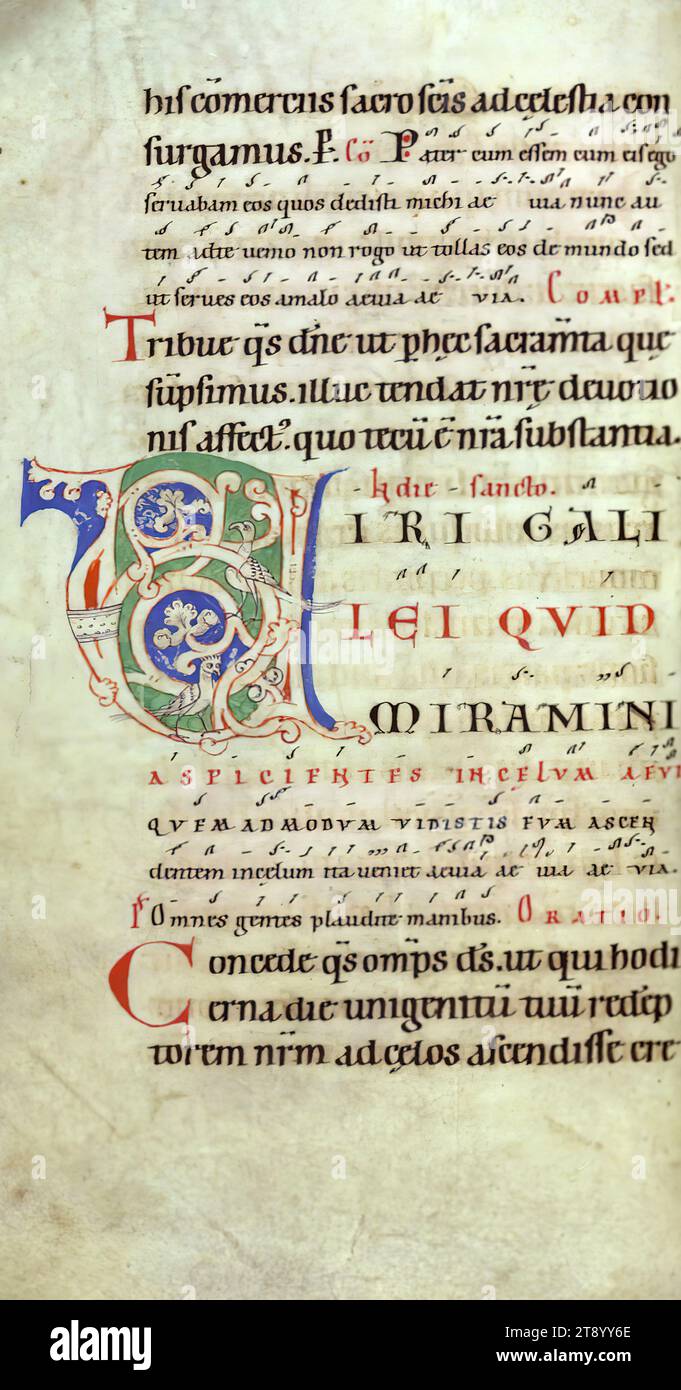 hıſ cōmercııſ ſacro ſcı̄s ad cęleſtıa con
ſurgamus. P. Cō Pater cum eſſem cum eıſ ego
ſeruabam eos quos dedıſtı mıchı ae uıa nunc au
tem adte uenıo non rogo ut tollas eos de mundo ſed
ut ſerues eos amalo aeuıa ae VIA. COMPL.
Trıbue q̄s dn̄e ut p hęc ſacram̄ta quę
ſūpſımus. ılluc tendat nr̄ę deuotıo
nıs affect᾿. quo tecū ē nr̄a ſubſtantıa.
In die sancto.
VIRI GALI
LEI QVID
MIRAMINI
ASPICIENTES IN CELVM AEVI
QVEMADMODVM VIDISTIS EVM ASCEN
dentem ıncelum ıta uenıet aeuıa ae uıa ae VIA.
P Omnes gentes plaudıte manıbus. ORATIO.
Concede q̄s omp̄s ds̄. ut quı hodı
erna dıe unıgenıtū tuū redēp
torem nr̄m ad cęlos aſcendıſſe cre
alamy
Image ID: 2T8YY6E
www.alamy.com